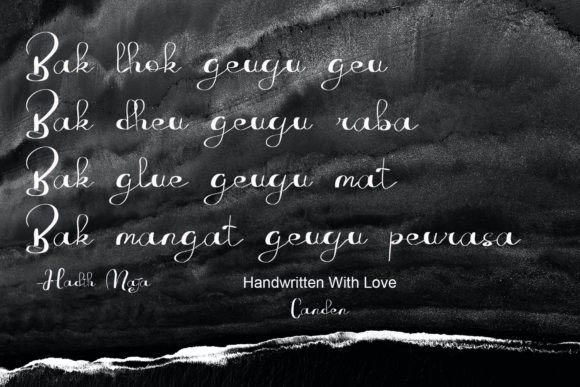 Bak lhok geugu geu
Bak dheu geugu raba
Bak glue geugu mat
Bak mangat geugu peurasa
-Hadih Maja
Handwritten With Love
Canden